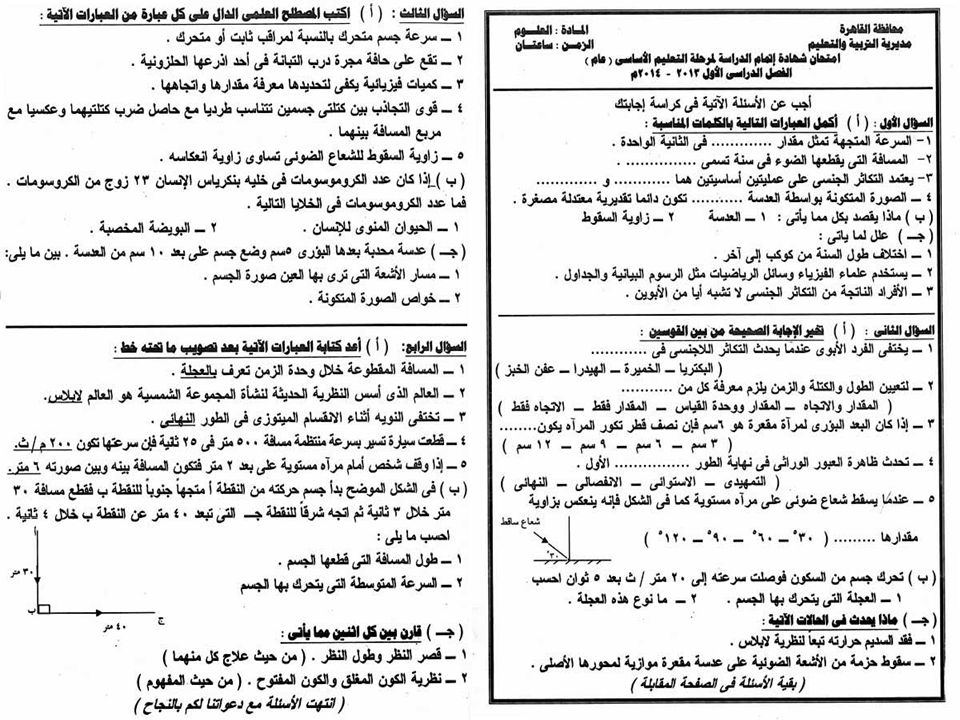 محافظة القاهرة
مديرية التربية والتعليم
المادة : العلوم
الزمن : ساعتان
امتحان شهادة إتمام الدراسة لمرحلة التعليم الأساسى ( عام )
الفصل الدراسى الأول ٢٠١٣ - ٢٠١٤م
أجب عن الأسئلة الآتية فى كراسة إجابتك
السؤال الأول : ( أ ) أكمل العبارات التالية بالكلمات المناسبة :
١- السرعة المتجهة تمثل مقدار ............ فى الثانية الواحدة .
٢- المسافة التى يقطعها الضوء فى سنة تسمى ..............
٣- يعتمد التكاثر الجنسى على عمليتين أساسيتين هما ............ و ............
٤ ــ الصورة المتكونة بواسطة العدسة .......... تكون دائما تقديرية معتدلة مصغرة .
( ب ) ماذا يقصد بكل مما يأتى : ١ ــ العدسة ٢ ــ زاوية السقوط
( جـ ) علل لما ياتى :
١ ــ اختلاف طول السنة من كوكب إلى آخر .
٢ ــ يستخدم علماء الفيزياء وسائل الرياضيات مثل الرسوم البيانية والجداول .
٣ ــ الأفراد الناتجة من التكاثر الجنسى لا تشبه أيا من الأبوين .
السؤال الثانى : ( أ ) تخير الإجابة الصحيحة من بين القوسين :
١ ــ يختفى الفرد الأبوى عندما يحدث التكاثر اللاجنسى فى ............
( البكتريا ــ الخميرة ــ الهيدرا ــ عفن الخبز )
٢ ــ لتعيين الطول والكتلة والزمن يلزم معرفة كل من ...........
( المقدار والاتجاه ــ المقدار ووحدة القياس ــ المقدار فقط ــ الاتجاه فقط )
٣ ــ إذا كان البعد البؤرى لمرآة مقعرة هو ٦سم فإن نصف قطر تكور المرآه يكون........
( ٣ سم ــ ٦ سم ــ ٩ سم ــ ١٢ سم )
٤ ــ تحدث ظاهرة العبور الوراثى فى نهاية الطور ............... الأول .
( التمهيدى ــ الاستوائى ــ الانفصالى ــ النهائى )
٥ ــ عندما يسقط شعاع ضوئى على مرآه مستوية كما فى الشكل فإنه ينعكس بزاوية
شعاع ساقط
مقدارها ......... ( ٣٠° ــ ٦٠° ــ ٩٠° ــ ١٢٠° )
٣٠°
( ب ) تحرك جسم من السكون فوصلت سرعته إلى ٢٠ متر / ث بعد ٥ ثوان احسب
١ ــ العجلة التى يتحرك بها الجسم . ٢ ــ ما نوع هذه العجلة .
( جـ ) ماذا يحدث فى الحالات الآتية :
١ ــ فقد السديم حرارته تبعاً لنظرية لابلاس .
٢ ــ سقوط حزمة من الأشعة الضوئية على عدسة مقعرة موازية لمحورها الأصلى .
( بقية الأسئلة فى الصفحة المقابلة )
السؤال الثالث : ( أ ) اكتب المصطلح العلمى الدال على كل عبارة من العبارات الآتية :
١ ــ سرعة جسم متحرك بالنسبة لمراقب ثابت أو متحرك .
٢ ــ تقع على حافة مجرة درب التبانة فى أحد اذرعها الحلزونية .
٣ ــ كميات فيزيائية يكفى لتحديدها معرفة مقدارها واتجاهها .
٤ ــ قوى التجاذب بين كتلتى جسمين تتناسب طرديا مع حاصل ضرب كتلتيهما وعكسيا مع
مربع المسافة بينهما .
٥ ــ زاوية السقوط للشعاع الضوئى تساوى زاوية انعكاسه .
( ب ) إذا كان عدد الكروموسومات فى خليه بنكرياس الإنسان ٢٣ زوج من الكروسومات .
فما عدد الكروموسومات فى الخلايا التالية .
١ ــ الحيوان المنوى للإنسان . ٢ ــ البويضة المخصبة .
( جـ ) عدسة محدبة بعدها البؤرى ٥سم وضع جسم على بعد ١٠ سم من العدسة . بين ما يلى:
١ ــ مسار الأشعة التى ترى بها العين صورة الجسم .
٢ ــ خواص الصورة المتكونة .
السؤال الرابع: ( أ ) أعد كتابة العبارات الآتية بعد تصويب ما تحته خط :
١ ــ المسافة المقطوعة خلال وحدة الزمن تعرف بالعجلة .
٢ ــ العالم الذى أسس النظرية الحديثة لنشأة المجموعة الشمسية هو العالم لابلاس.
٣ ــ تختفى النويه أثناء الانقسام الميتوزى فى الطور النهائى .
٤ ــ قطعت سيارة تسير بسرعة منتظمة مسافة ٥٠٠ متر فى ٢٥ ثانية فإن سرعتها تكون ٢٠٠ م / ث.
٥ ــ إذا وقف شخص أمام مرآه مستوية على بعد ٢ متر فتكون المسافة بينه وبين صورته ٦ متر.
( ب ) فى الشكل الموضح بدأ جسم حركته من النقطة أ متجهاً جنوباً للنقطة ب فقطع مسافة ٣٠
متر خلال ٣ ثانية ثم اتجه شرقاً للنقطة جـ التى تبعد ٤٠ متر عن النقطة ب خلال ٤ ثانية .
احسب ما يلى :
١ ــ طول المسافة التى قطعها الجسم .
٢ ــ السرعة المتوسطة التى يتحرك بها الجسم
أ
٣٠ متر
ب
٤٠ متر
ج
( جـ ) قارن بين كل اثنين مما يأتى :
١ ــ قصر النظر وطول النظر . ( من حيث علاج كل منهما )
٢ ــ نظرية الكون المغلق والكون المفتوح . ( من حيث المفهوم )
( انتهت الأسئلة مع دعواتنا لكم بالنجاح )